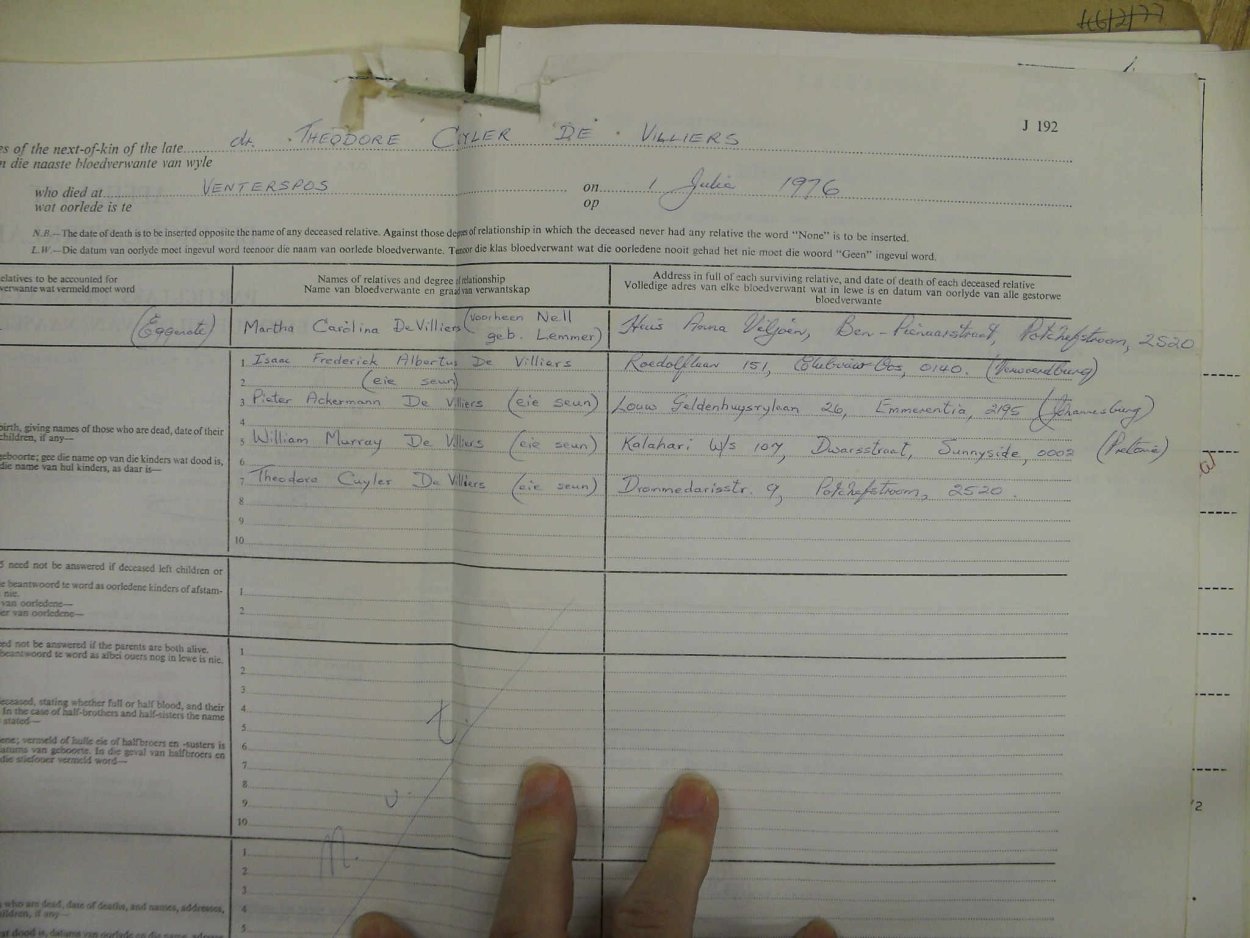 16/2/77
J 192
es of the next-of-kin of the late dr. THEODORE CUYLER DE VILLIERS
n die naaste bloedverwante van wyle
who died at VENTERSPOS on 1 Julie 1976
wat oorlede is te op
N.B.—The date of death is to be inserted opposite the name of any deceased relative. Against those degrees of relationship in which the deceased never had any relative the word "None" is to be inserted.
L.W.—Die datum van oorlyde moet ingevul word teenoor die naam van oorlede bloedverwante. Teenoor die klas bloedverwant wat die oorledene nooit gehad het nie moet die woord "Geen" ingevul word.
elatives to be accounted for Names of relatives and degree of relationship Address in full of each surviving relative, and date of death of each deceased relative
verwante wat vermeld moet word Name van bloedverwante en graad van verwantskap Volledige adres van elke bloedverwant wat in lewe is en datum van oorlyde van alle gestorwe
bloedverwante
(Eggenote) Martha Carolina De Villiers (voorheen Nell Huis Anna Viljoen, Ben-Pienaarstraat, Potchefstroom, 2520
geb. Lemmer)
1 Isaac Frederick Albertus De Villiers Roedolflaan 151, Clubview-Oos, 0140. (Verwoerdburg)
2 (eie seun)
3 Pieter Ackermann De Villiers (eie seun) Louw Geldenhuysrylaan 26, Emmerentia, 2195 (Johannesburg)
4
birth, giving names of those who are dead, date of their
children, if any—
5 William Murray De Villiers (eie seun) Kalahari W/S 107, Dwarsstraat, Sunnyside, 0002 (Pretoria)
geboorte; gee die name op van die kinders wat dood is,
die name van hul kinders, as daar is—
6
7 Theodore Cuyler De Villiers (eie seun) Drommedarisstr. 9, Potchefstroom, 2520.
8
9
10
5 need not be answered if deceased left children or
e beantwoord te word as oorledene kinders of afstam-
nie.
van oorledene—
er van oorledene—
1
2
eed not be answered if the parents are both alive.
beantwoord te word as albei ouers nog in lewe is nie.
1
2
3
eceased, stating whether full or half blood, and their
In the case of half-brothers and half-sisters the name
stated—
4
5
ene; vermeld of hulle eie of halfbroers en -susters is
datums van geboorte. In die geval van halfbroers en
die stiefouer vermeld word—
6
7
8
9
10
n.v.t.
1
2
3
who are dead, date of deaths, and names, addresses,
hildren, if any—
4
5
at dood is, datums van oorlyde en die name, adresse
/2